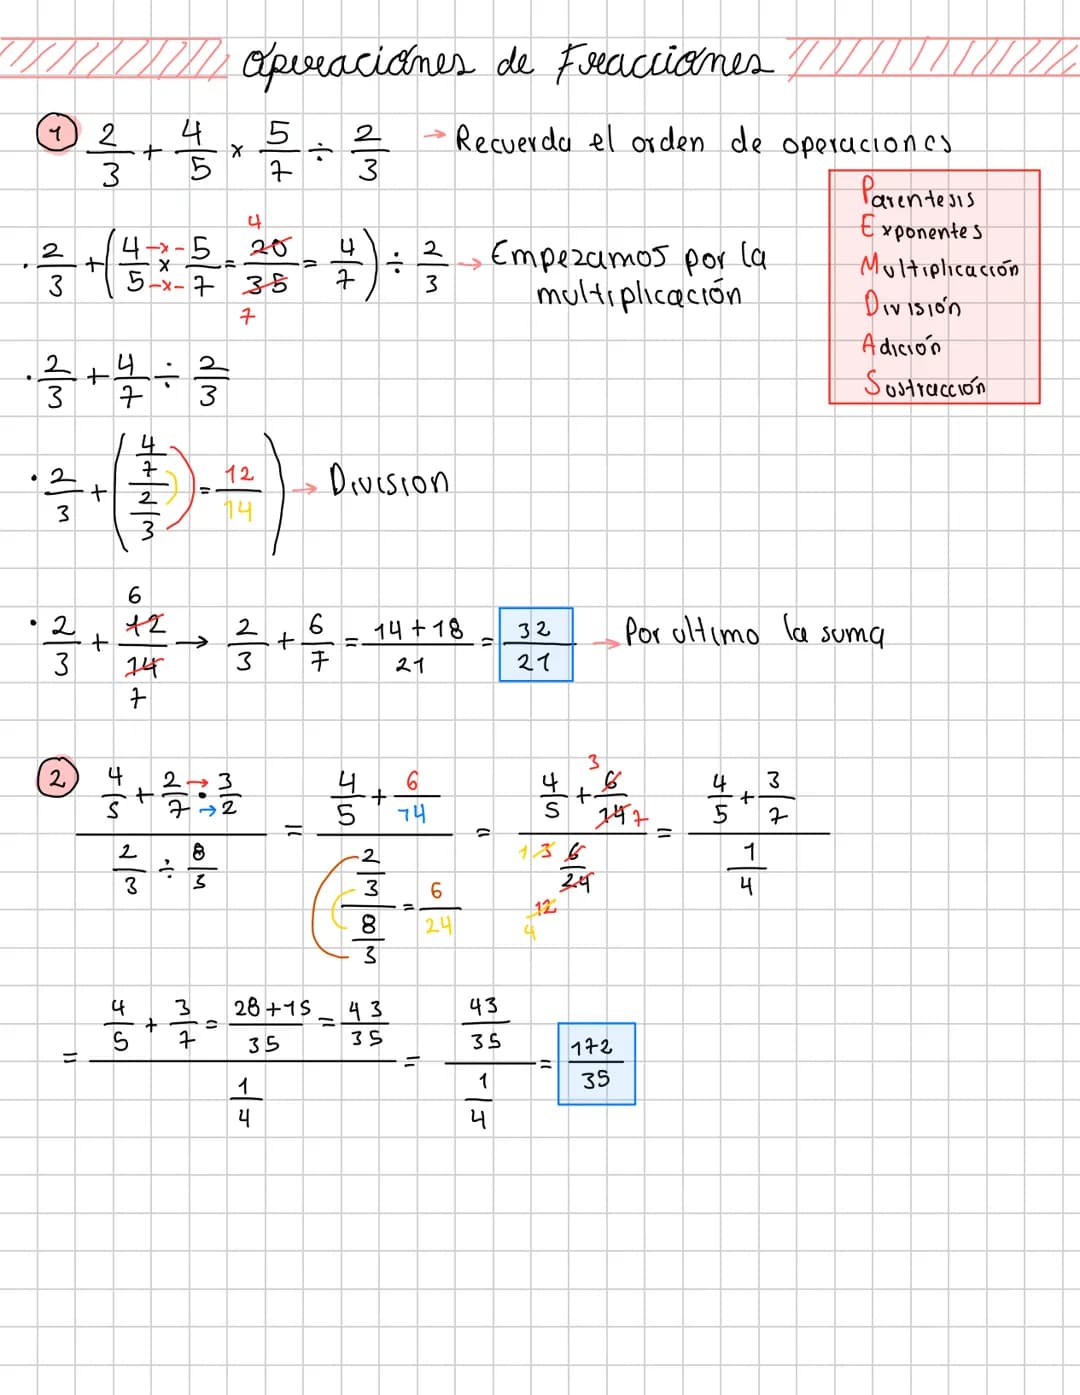 Operaciones de Fracciones
1 2/3 + 4/5 × 5/7 ÷ 2/3 → Recuerda el orden de operaciones
Parentesis
Exponentes
Multiplicación
División
Adición
Sustracción
· 2/3 + (4/5 × 5/7 = 20/35 = 4/7) ÷ 2/3 → Empezamos por la
multiplicación
4
7
· 2/3 + 4/7 ÷ 2/3
· 2/3 + ((4/7)/(2/3) = 12/14) → Division
· 2/3 + 12/14 → 2/3 + 6/7 = (14+18)/21 = 32/21 → Por ultimo la suma
6
7
2 (4/5 + 2/7 · 3/2)/(2/3 ÷ 8/3) = (4/5 + 6/14)/((2/3)/(8/3) = 6/24) = (4/5 + 6/14)/(6/24) = (4/5 + 3/7)/(1/4)
3
7
1 3
12
4
= (4/5 + 3/7 = (28+15)/35 = 43/35)/(1/4) = (43/35)/(1/4) = 172/35